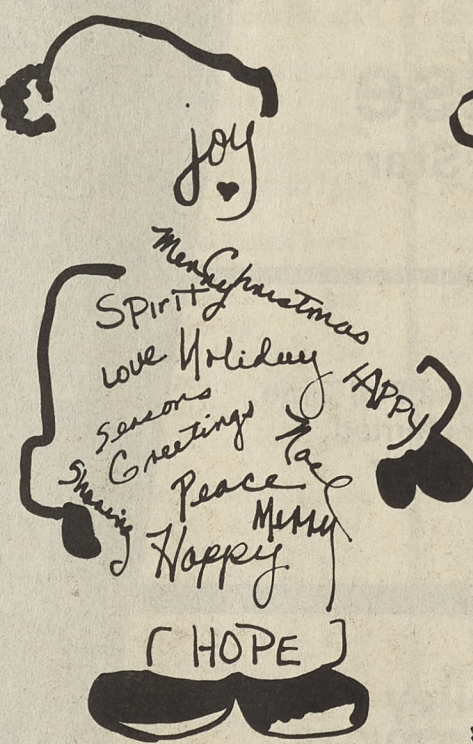 joy
Merry Christmas
Spirit
Love Holiday
HAPPY
Seasons
Greetings
Noel
Sharing
Peace
Merry
Happy
HOPE